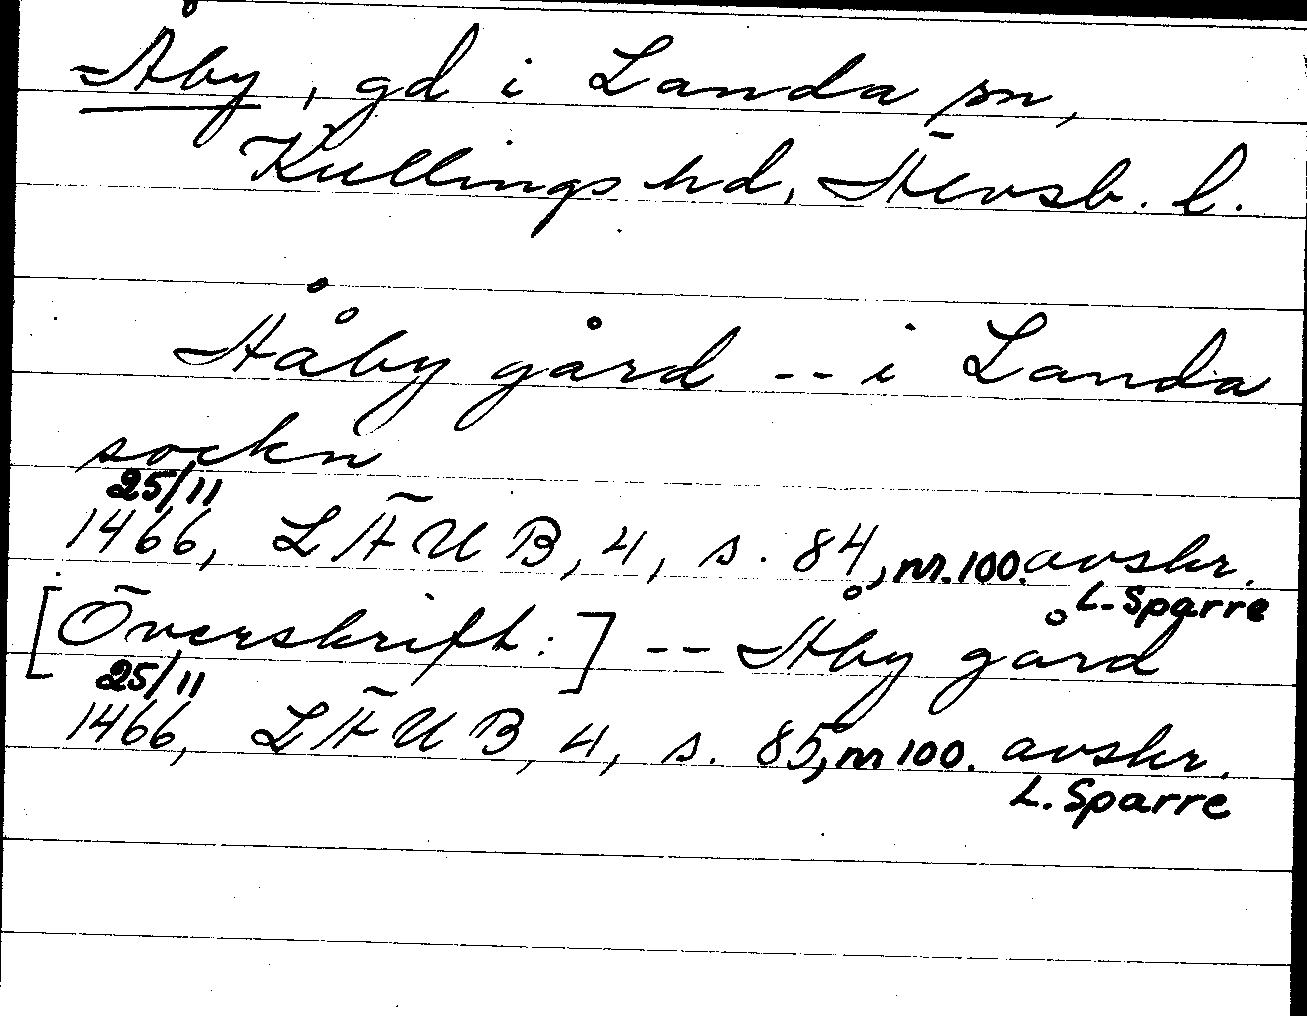 Åby, gd i Landa sn,
Kullings hd, Älvsb. l.
Ååby gård -- i Landa
sockn
25/11
1466, LÄUB, 4, s. 84, nr. 100. avskr.
L. Sparre
[Överskrift:] -- Åby gård
25/11
1466, LÄUB, 4, s. 85, nr 100. avskr.
L. Sparre